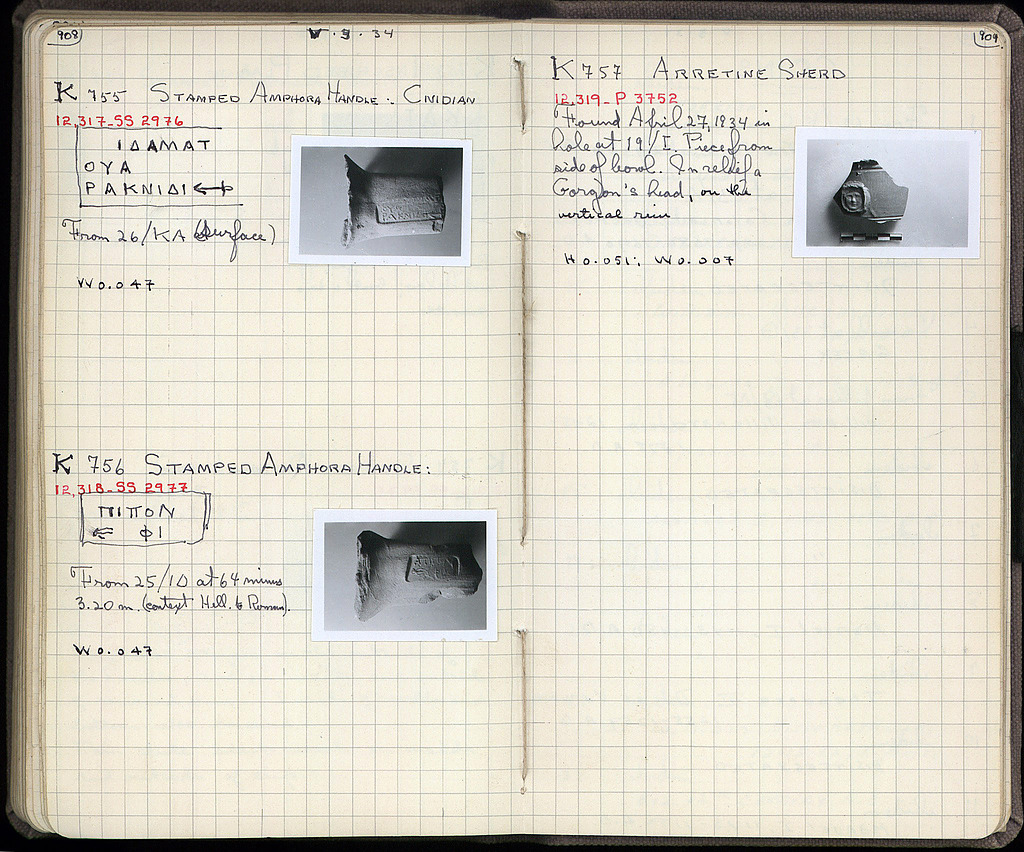 908
V . 3 . 34
K 755 STAMPED AMPHORA HANDLE : CNIDIAN
12,317-SS 2976
ΙΔΑΜΑΤ
ΟΥΑ
ΡΑΚΝΙΔΙ
From 26/KA (Surface)
W 0.047
K 756 STAMPED AMPHORA HANDLE:
12,318-SS 2977
ΠΙΠΟΝ
ΦΙ
From 25/ΙΔ at 64 minus
3.20 m. (context Hell. to Roman).
W 0.047
909
K 757 ARRETINE SHERD
12,319-P 3752
Found April 27, 1934 in
hole at 19/I. Piece from
side of bowl. In relief a
Gorgon's head, on the
vertical rim
H 0.051; W 0.007